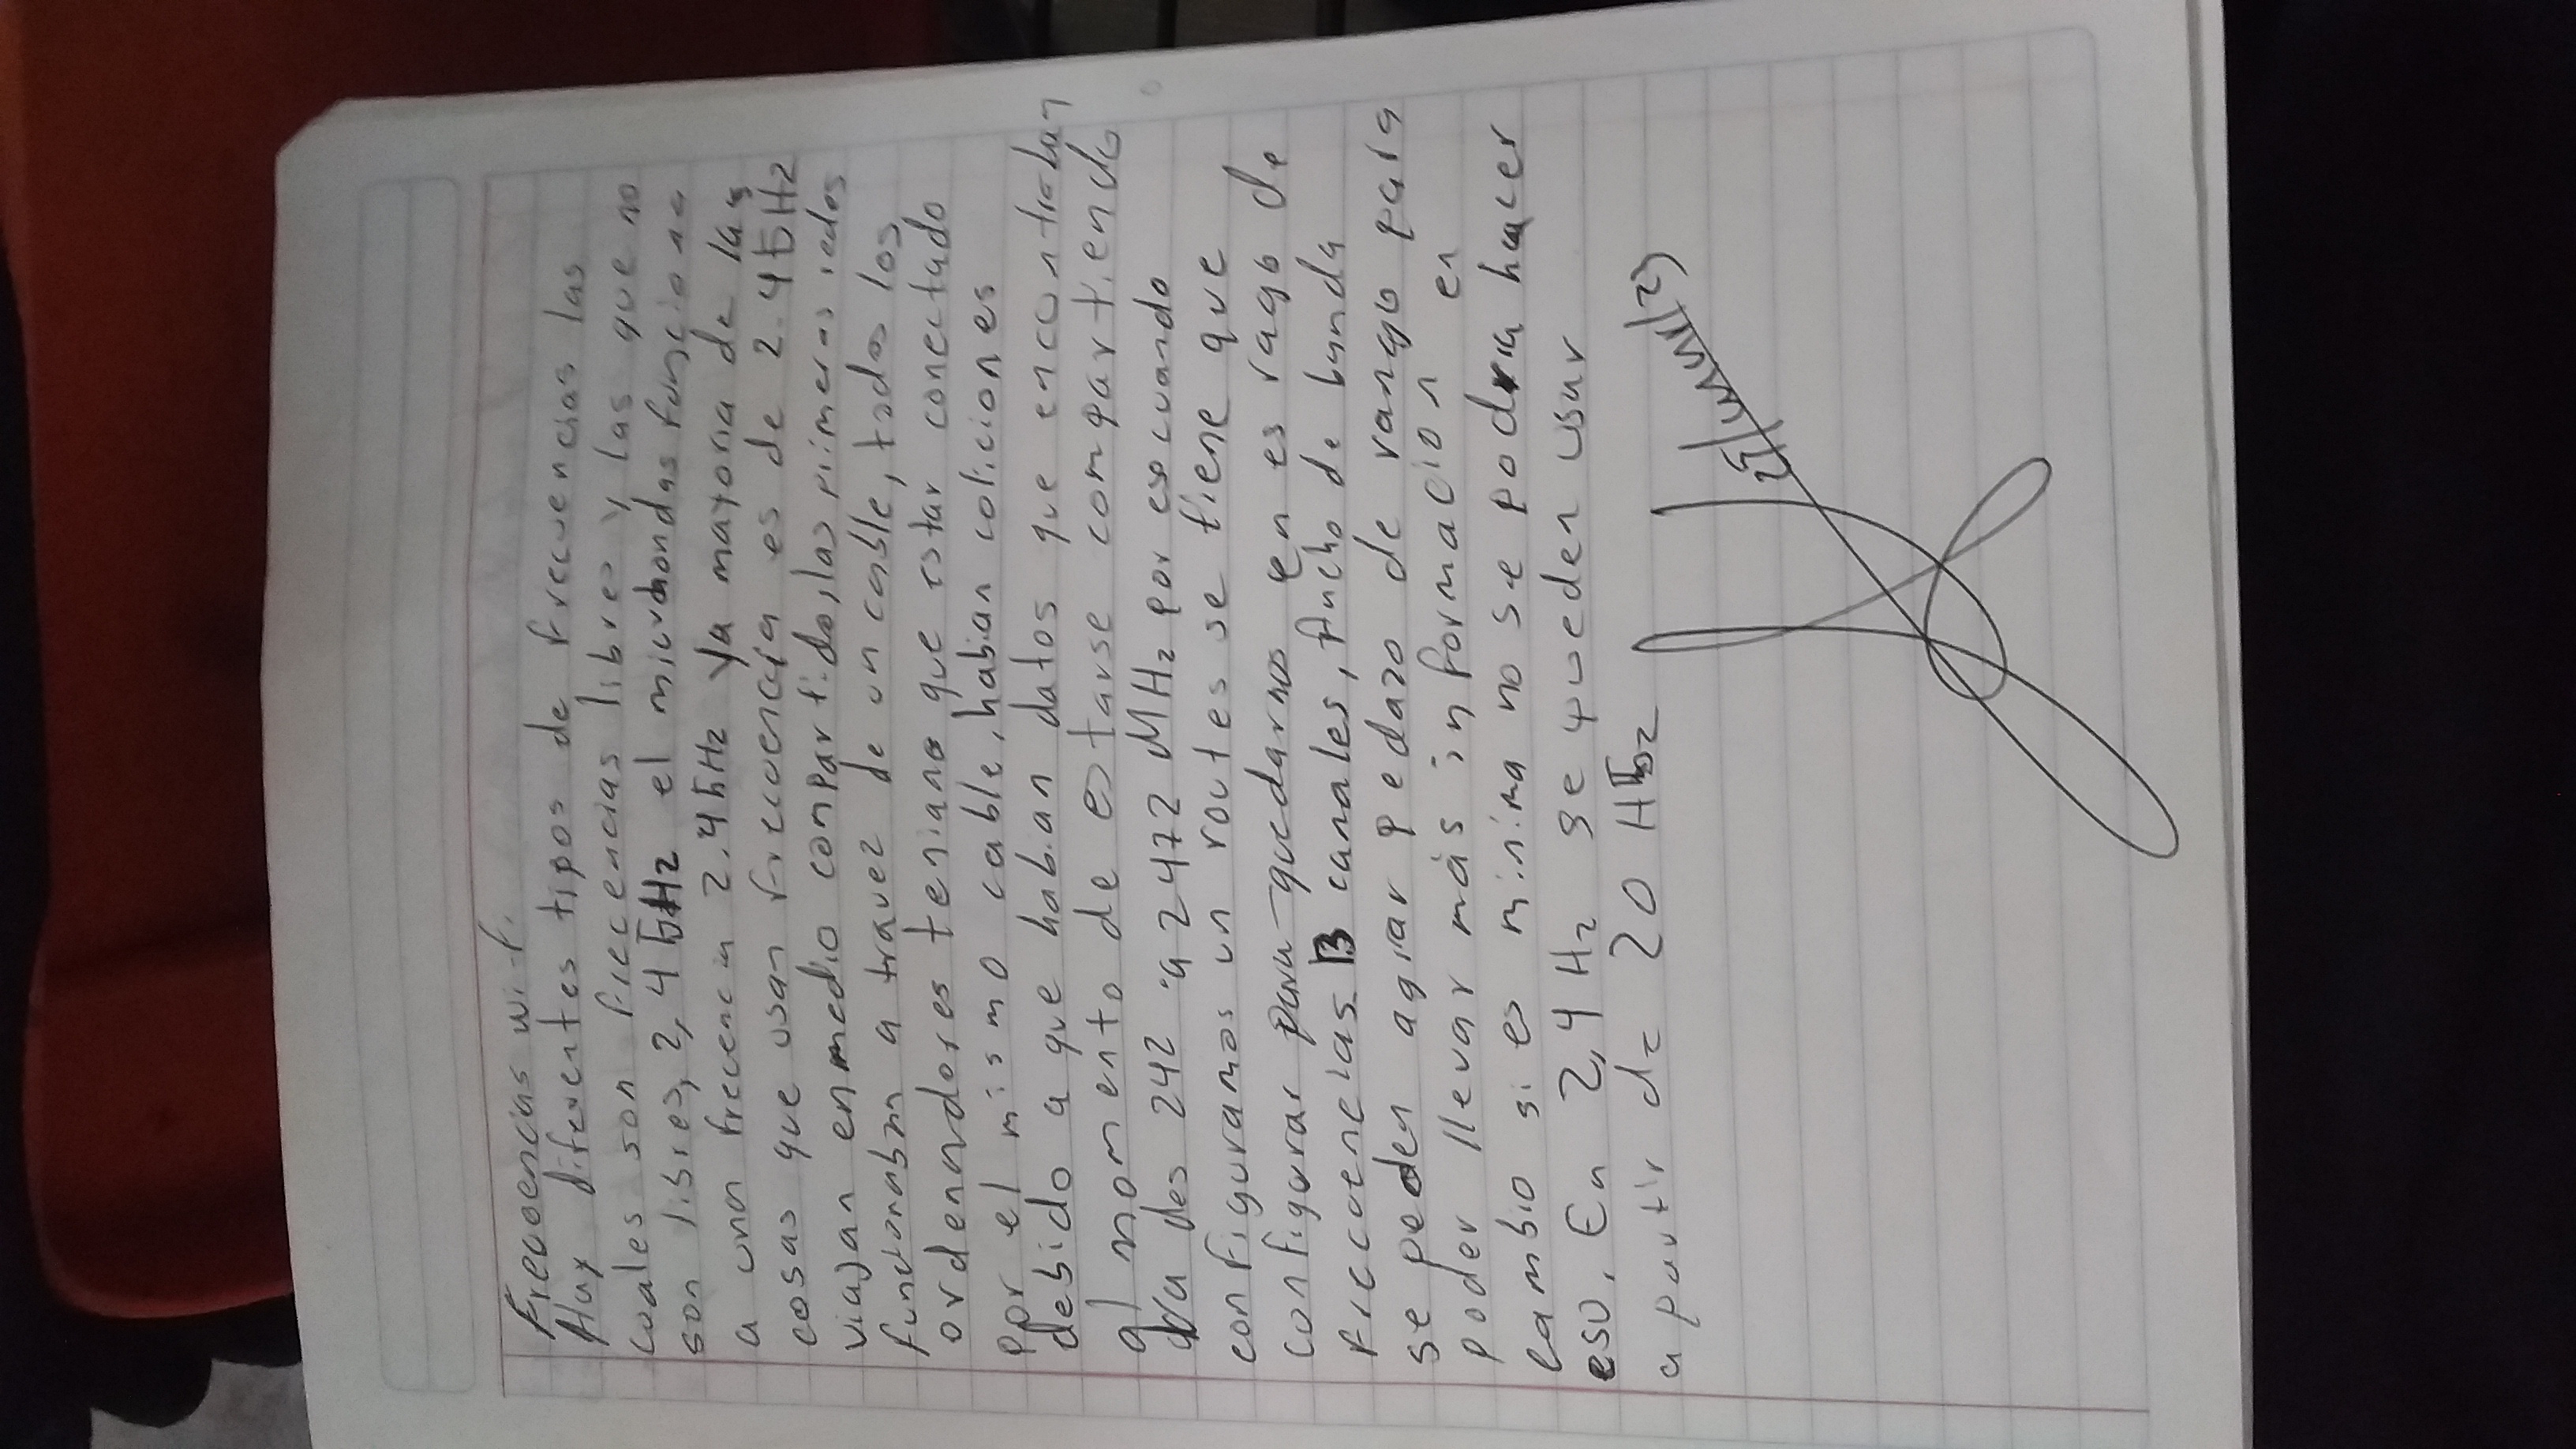 Frecuencias wi-fi
Hay diferentes tipos de frecuencias las
cuales son frecencias libres y las que no
son libres, 2,4 GHz el microhondas funciona
a una frecencia 2.4 GHz ya mayoria de las
cosas que usan frecuencia es de 2.4 GHz
viajan enmedio conpartido, las primeras redes
funcionaban a travez de un cable, todos los
ordenadores teniano que estar conectado
por el mismo cable, habian coliciones
debido a que habian datos que encontraban
al momento de estarse compartiendo
va des 242 a 2472 MHz por eso cuando
configuramos un routes se tiene que
configurar para quedarnos en es rago de
frecuencias 13 canales, Ancho de banda
se peden agrar pedazo de rango para
poder llevar más informacion en
cambio si es minima no se podria hacer
eso. En 2,4 Hz se pueden usar
a partir de 20 Hz